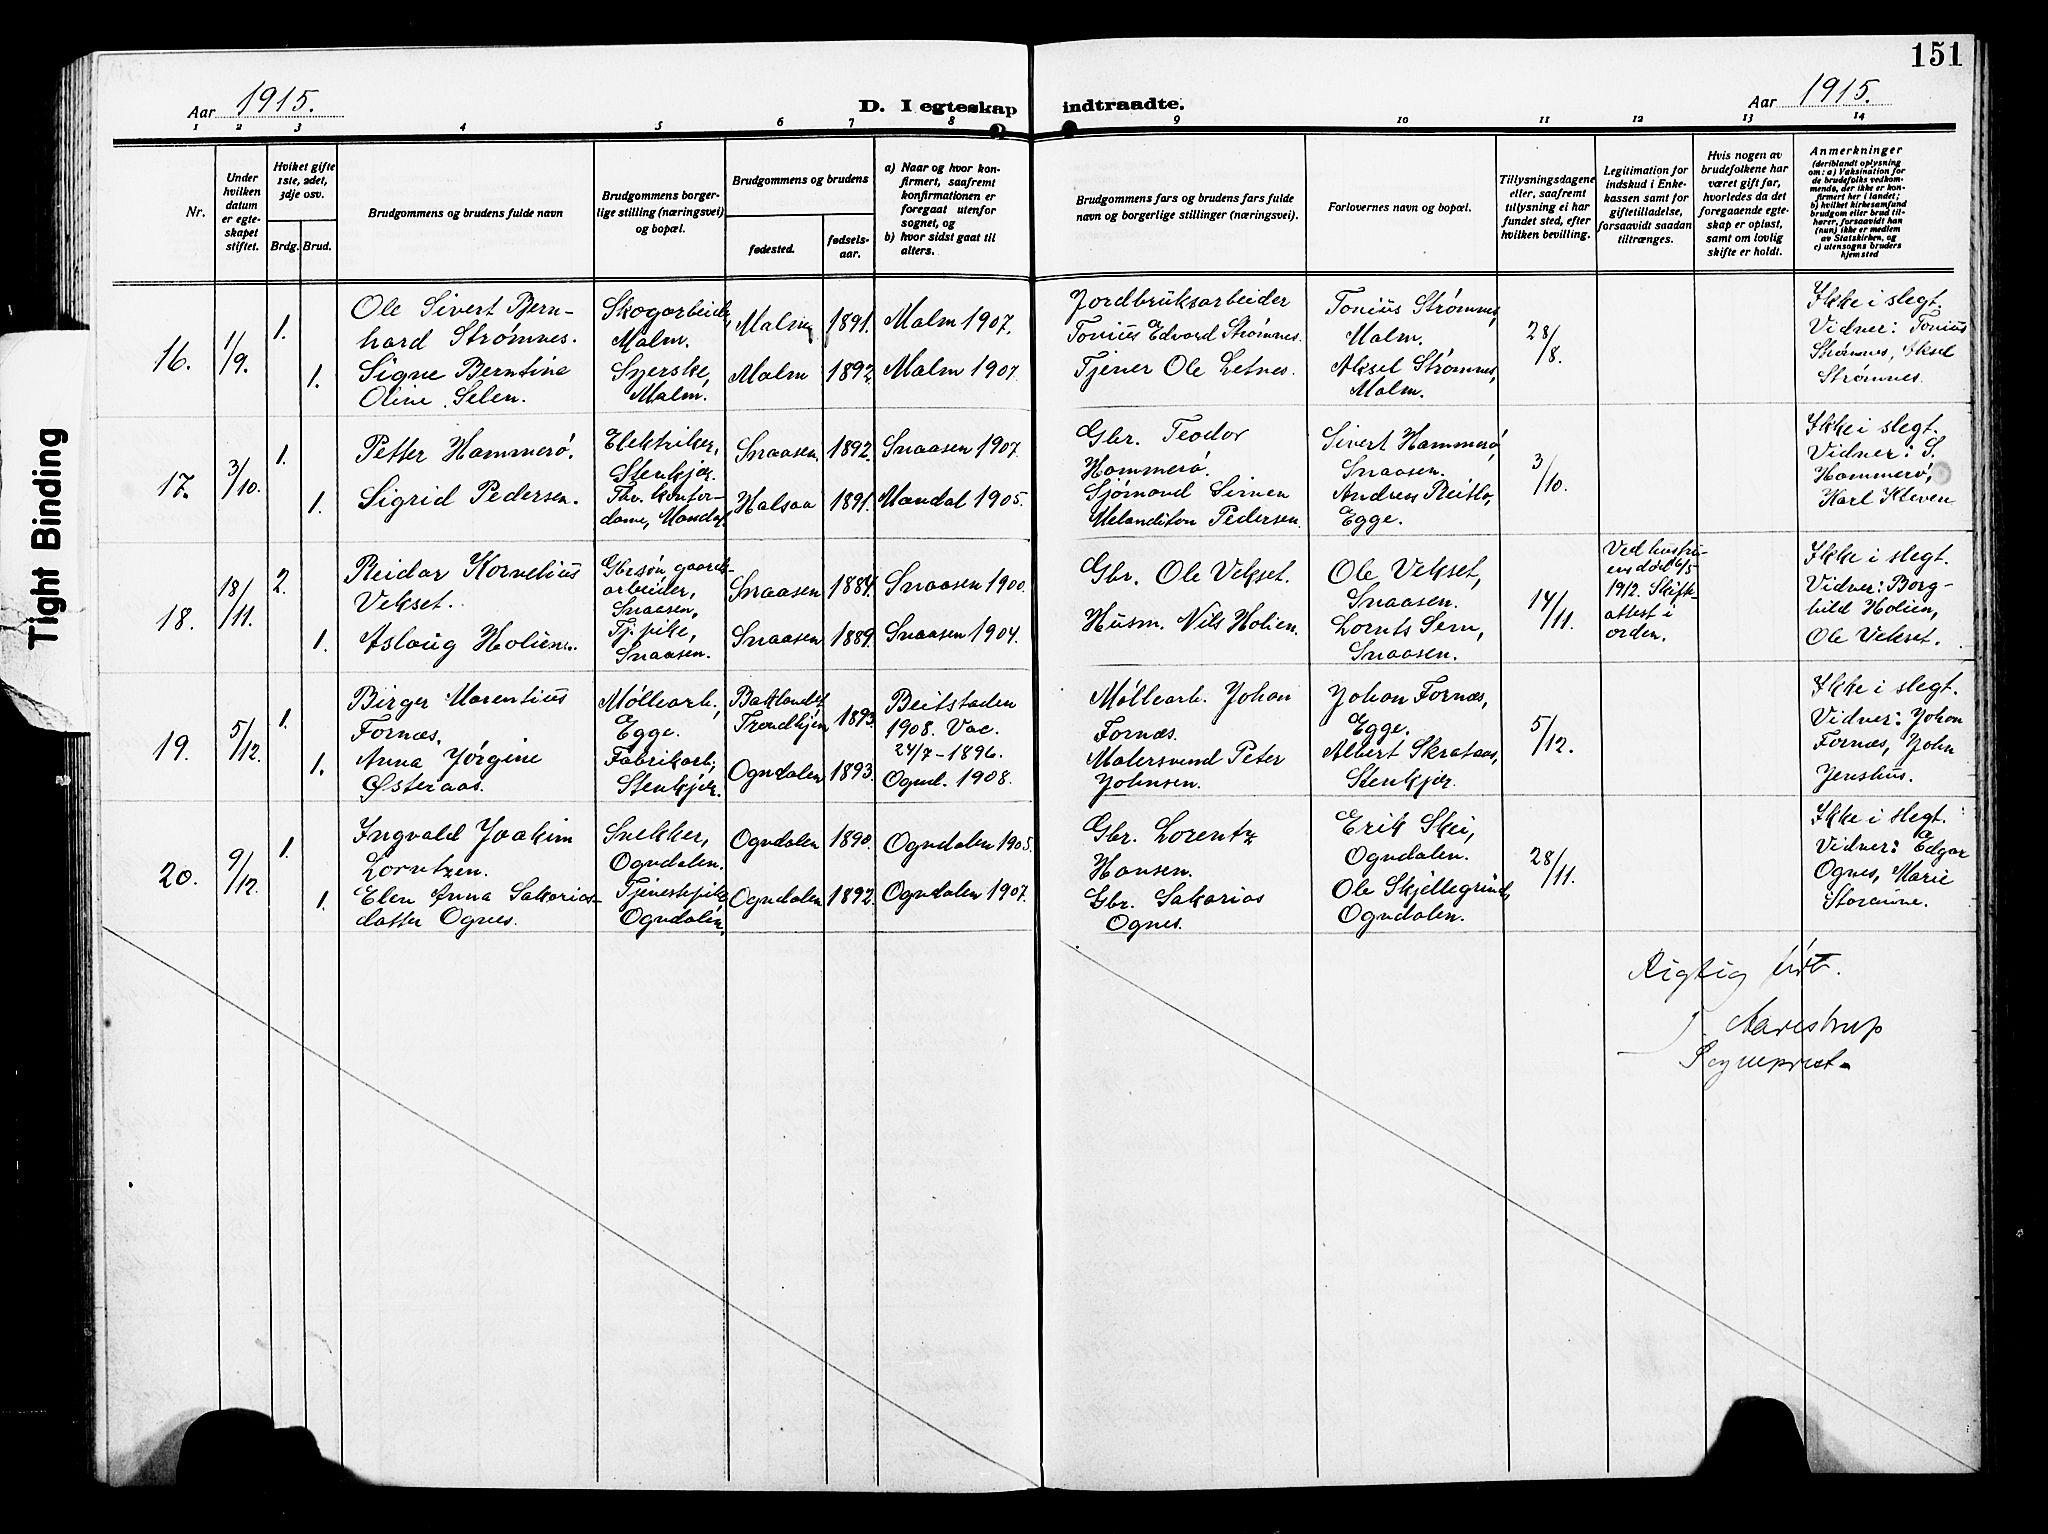 151
Aar 1915.
D. I egteskap indtraadte.
Aar 1915.
1 2 3 4 5 6 7 8 9 10 11 12 13 14
Nr.
Under hvilken datum er egteskapet stiftet.
Hviket gifte 1ste, 2det, 3dje osv.
Brdg. Brud.
Brudgommens og brudens fulde navn
Brudgommens borgerlige stilling (næringsvei) og bopæl.
Brudgommens og brudens
fødested.
fødselsaar.
a) Naar og hvor konfirmert, saafremt konfirmationen er foregaat utenfor sognet, og
b) hvor sidst gaat til alters.
Brudgommens fars og brudens fars fulde navn og borgerlige stillinger (næringsvei).
Forlovernes navn og bopæl.
Tillysningsdagene eller, saafremt tillysning ei har fundet sted, efter hvilken bevilling.
Legitimation for indskud i Enkekassen samt for giftetilladelse, forsaavidt saadan tiltrænges.
Hvis nogen av brudefolkene har været gift før, hvorledes da det foregaaende egteskap er opløst, samt om lovlig skifte er holdt.
Anmerkninger
(deriblandt oplysning om: a) Vaksination for de brudefolks vedkommende, der ikke er konfirmert her i landet; b) hvilket kirkesamfund brudgom eller brud tilhører, forsaavidt han (hun) ikke er medlem av Statskirken, og c) utensogns bruders hjemsted
16. 1/9. 1. Ole Sivert Bernhard Strømnes. Skogarbeider, Malm. Malm 1891. Malm 1907. Jordbruksarbeider Tonius Edvard Strømnes. Tonius Strømnes, Malm. 28/8. Ikke i slegt. Vidner: Tonius Strømnes, Aksel Strømnes.
1. Signe Berntine Oline Selen. Syerske, Malm. Malm 1892. Malm 1907. Tjener Ole Letnes. Aksel Strømnes, Malm.
17. 3/10. 1. Petter Hammerø. Elektriker, Stenkjer. Snaasen 1892. Snaasen 1907. Gbr. Teodor Hammerø. Sivert Hammerø, Snaasen. 3/10. Ikke i slegt. Vidner: S. Hammerø, Karl Kleven
1. Sigrid Pedersen. Fhv. kontordame, Mandal. Halsaa 1891. Mandal 1905. Sjømand Simen Melankton Pedersen. Andreas Reitlo, Egge.
18. 18/11. 2. Reidar Kornelius Vekset. Gbrsøn gaardsarbeider, Snaasen, Snaasen 1884. Snaasen 1900. Gbr. Ole Vekset. Ole Vekset, Snaasen. 14/11. Ved hustruens død 6/5 1912. Skifteattest i orden. Ikke i slegt. Vidner: Borghild Holien, Ole Vekset.
1. Aslaug Holien. Tj.pike, Snaasen. Snaasen 1889. Snaasen 1904. Husm. Nils Holien. Lornts Sem, Snaasen.
19. 5/12. 1. Birger Marentius Fornæs. Møllearb., Egge. Baklandet Trondhjem 1893. Beitstaden 1908. Vac. 24/7-1896. Møllearb. Johan Fornæs. Johan Fornæs, Egge. 5/12. Ikke i slegt. Vidner: Johan Fornæs, John Jenshus.
1. Anna Jørgine Østeraas. Fabrikarb., Stenkjer. Ogndalen 1893. Ognd. 1908. Malersvend Peter Johnsen. Albert Skrataas, Stenkjer.
20. 9/12. 1. Ingvald Joakim Lorntzen. Snekker, Ogndalen. Ogndalen 1890. Ogndalen 1905. Gbr. Lorentz Hansen. Erik Skei, Ogndalen. 28/11. Ikke i slegt. Vidner: Edgar Ognes, Marie Storaune.
1. Elen Anna Sakariasdatter Ognes. Tjenestepike Ogndalen. Ogndalen 1892. Ogndalen 1907. Gbr. Sakarias Ognes. Ole Skjellegrind, Ogndalen.
Rigtig ført.
Aarestrup
Sogneprest
Tight Binding